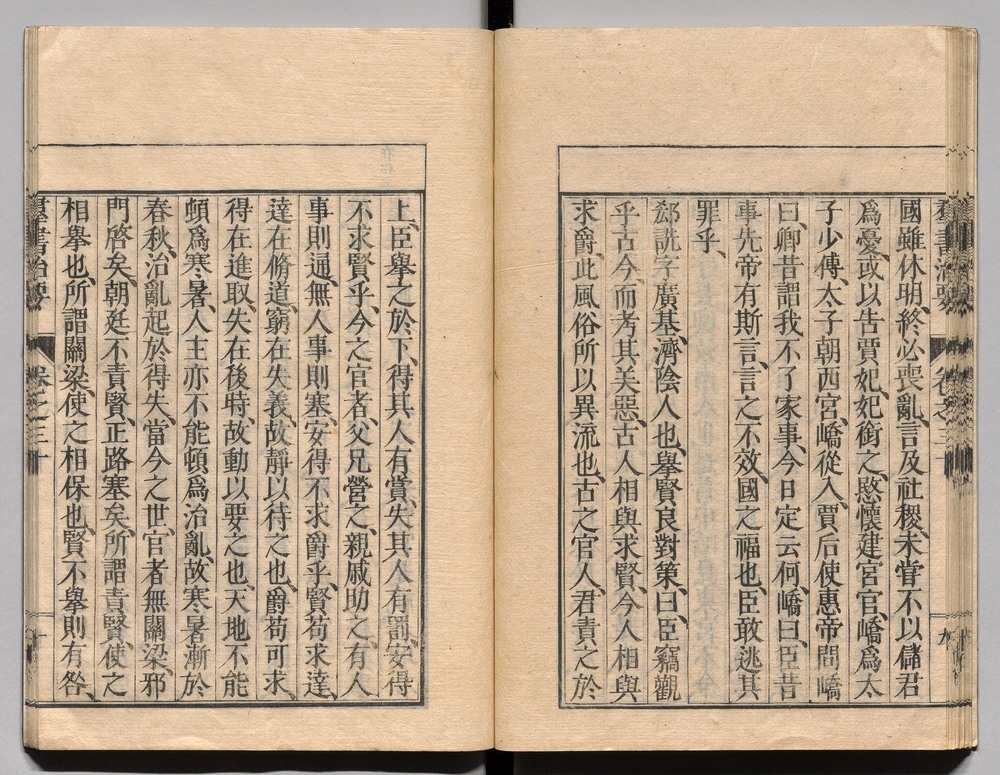 羣書治要 卷之三十 九
國雖休明、終必喪亂、言及社稷、未甞不以儲君
爲憂、或以告賈妃、妃銜之、愍懷建宮官、嶠爲太
子少傅、太子朝西宮、嶠從入、賈后使惠帝問嶠
曰、卿昔謂我不了家事、今日定云何、嶠曰、臣昔
事先帝有斯言、言之不效、國之福也、臣敢逃其
罪乎、
郄詵字廣基、濟陰人也、擧賢良對策、曰、臣竊觀
乎古今、而考其美惡、古人相與求賢、今人相與
求爵、此風俗所以異流也、古之官人、君責之於
上、臣擧之於下、得其人有賞、失其人有罰、安得
不求賢乎、今之官者、父兄營之、親戚助之、有人
事則通、無人事則塞、安得不求爵乎、賢苟求達、
達在脩道、窮在失義、故靜以待之也、爵苟可求、
得在進取、失在後時、故動以要之也、天地不能
頓爲寒暑、人主亦不能頓爲治亂、故寒暑漸於
春秋、治亂起於得失、當今之世、官者無關梁、邪
門啓矣、朝廷不責賢、正路塞矣、所謂責賢、使之
相擧也、所謂關梁、使之相保也、賢不擧則有咎、
羣書治要 卷之三十 十